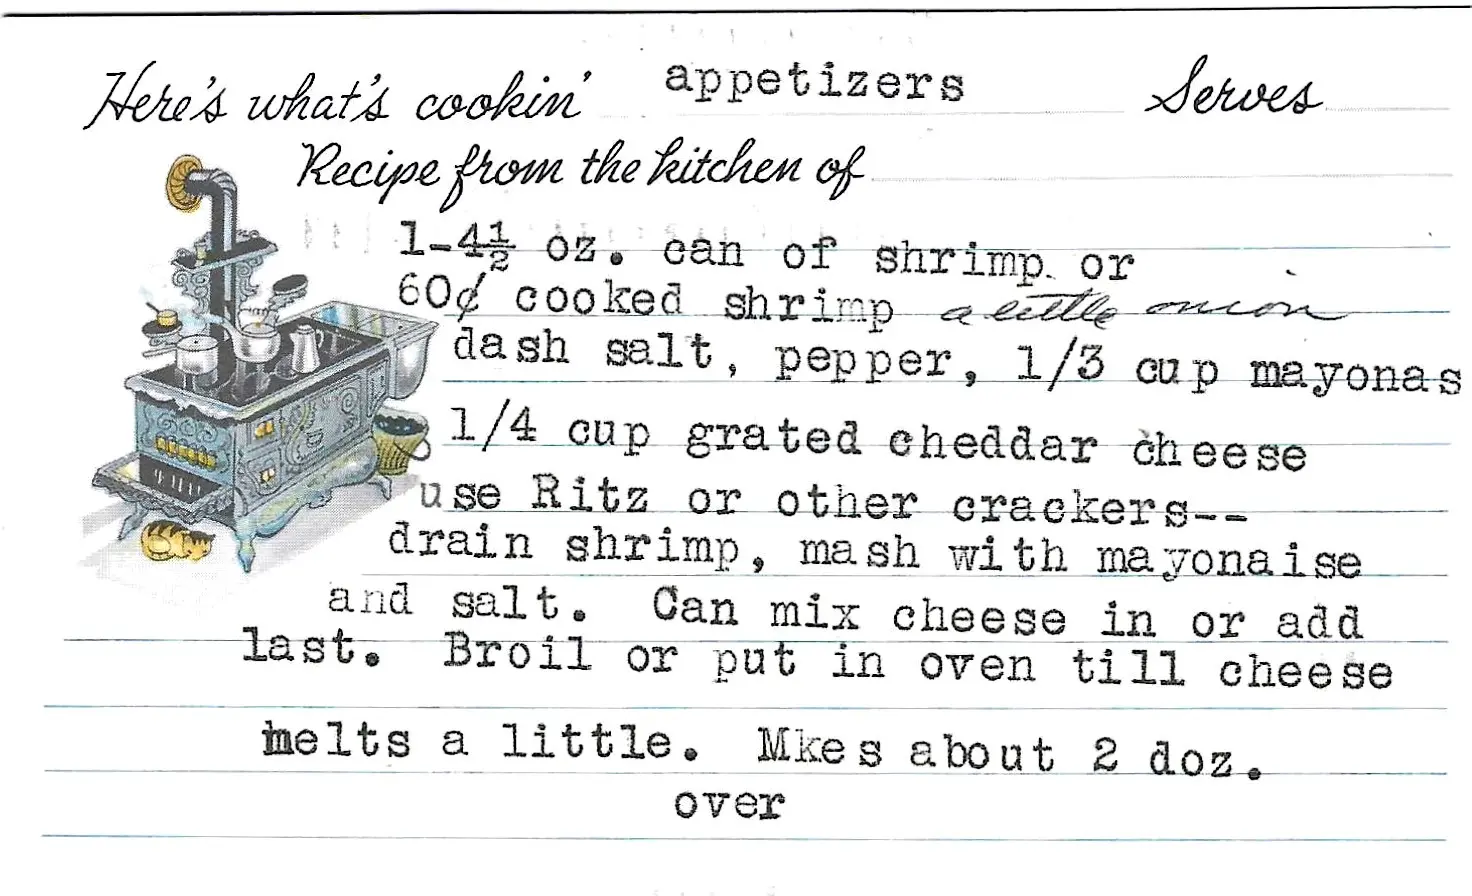 Here's what's cookin' appetizers Serves
Recipe from the kitchen of
1-4½ oz. can of shrimp. or
60¢ cooked shrimp a little onion
dash salt, pepper, 1/3 cup mayonas
1/4 cup grated cheddar cheese
use Ritz or other crackers--
drain shrimp, mash with mayonaise
and salt. Can mix cheese in or add
last. Broil or put in oven till cheese
melts a little. Mkes about 2 doz.
over